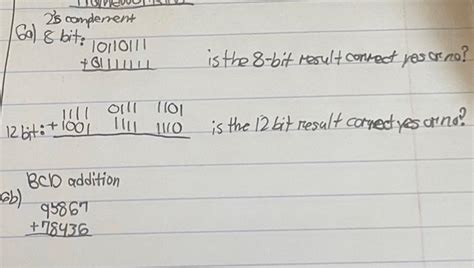 2's complement
6a) 8 bit: 10110111
+01111111
is the 8-bit result correct yes or no?
1111 0111 1101
12 bit: +1001 1111 1110
is the 12 bit result correct yes or no?
BCD addition
6b) 95867
+78436